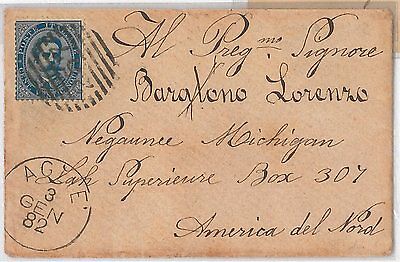 Al Preg.mo Signore
Lorenzo
Negaunee Michigan
Lak Superieure Box 307
America del Nord
3
GEN
82